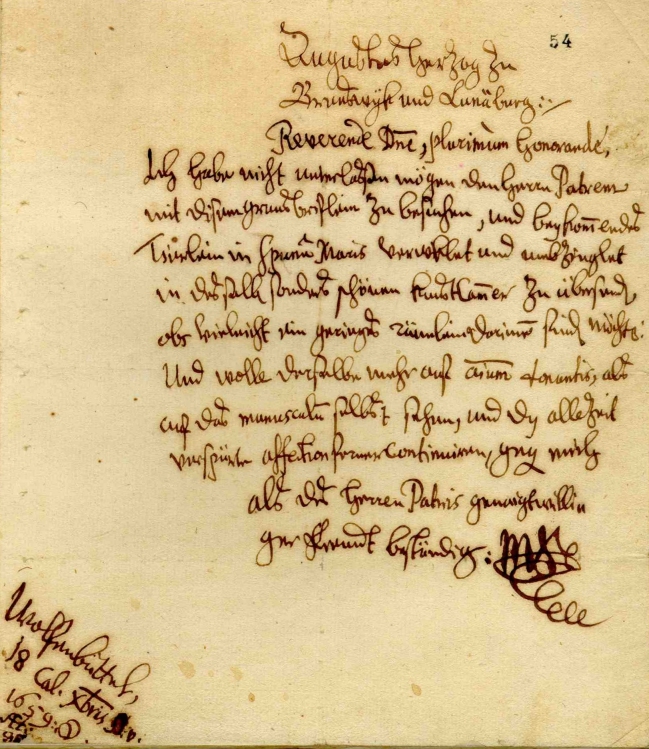 54
Augustus Herzog zu
Brunswyk und Lunäburg:
Reverende Dne, plurimum honorande,
Ich habe nicht unterlaßen mögen den Herrn Patrem
mit disem gruesbrieflein zu besuchen, und beykom̄endes
Tüerlein in Maris und umbzinglet
in desselb sonders schönen kunstkam̄er zu übersend,
obs vieleicht ein geringes räumlein darinnē find möchte:
Und wolle derselbe mehr auf donantis, als
auf das munusculū selbst sehen, und dy allezeit
verspürte affection ferner continuiren, geg mich
als des Herren Patris genaigtwillin
ger Freund bestendig:
Wolfenbüttel,
18 Cal. Xbris
1659: